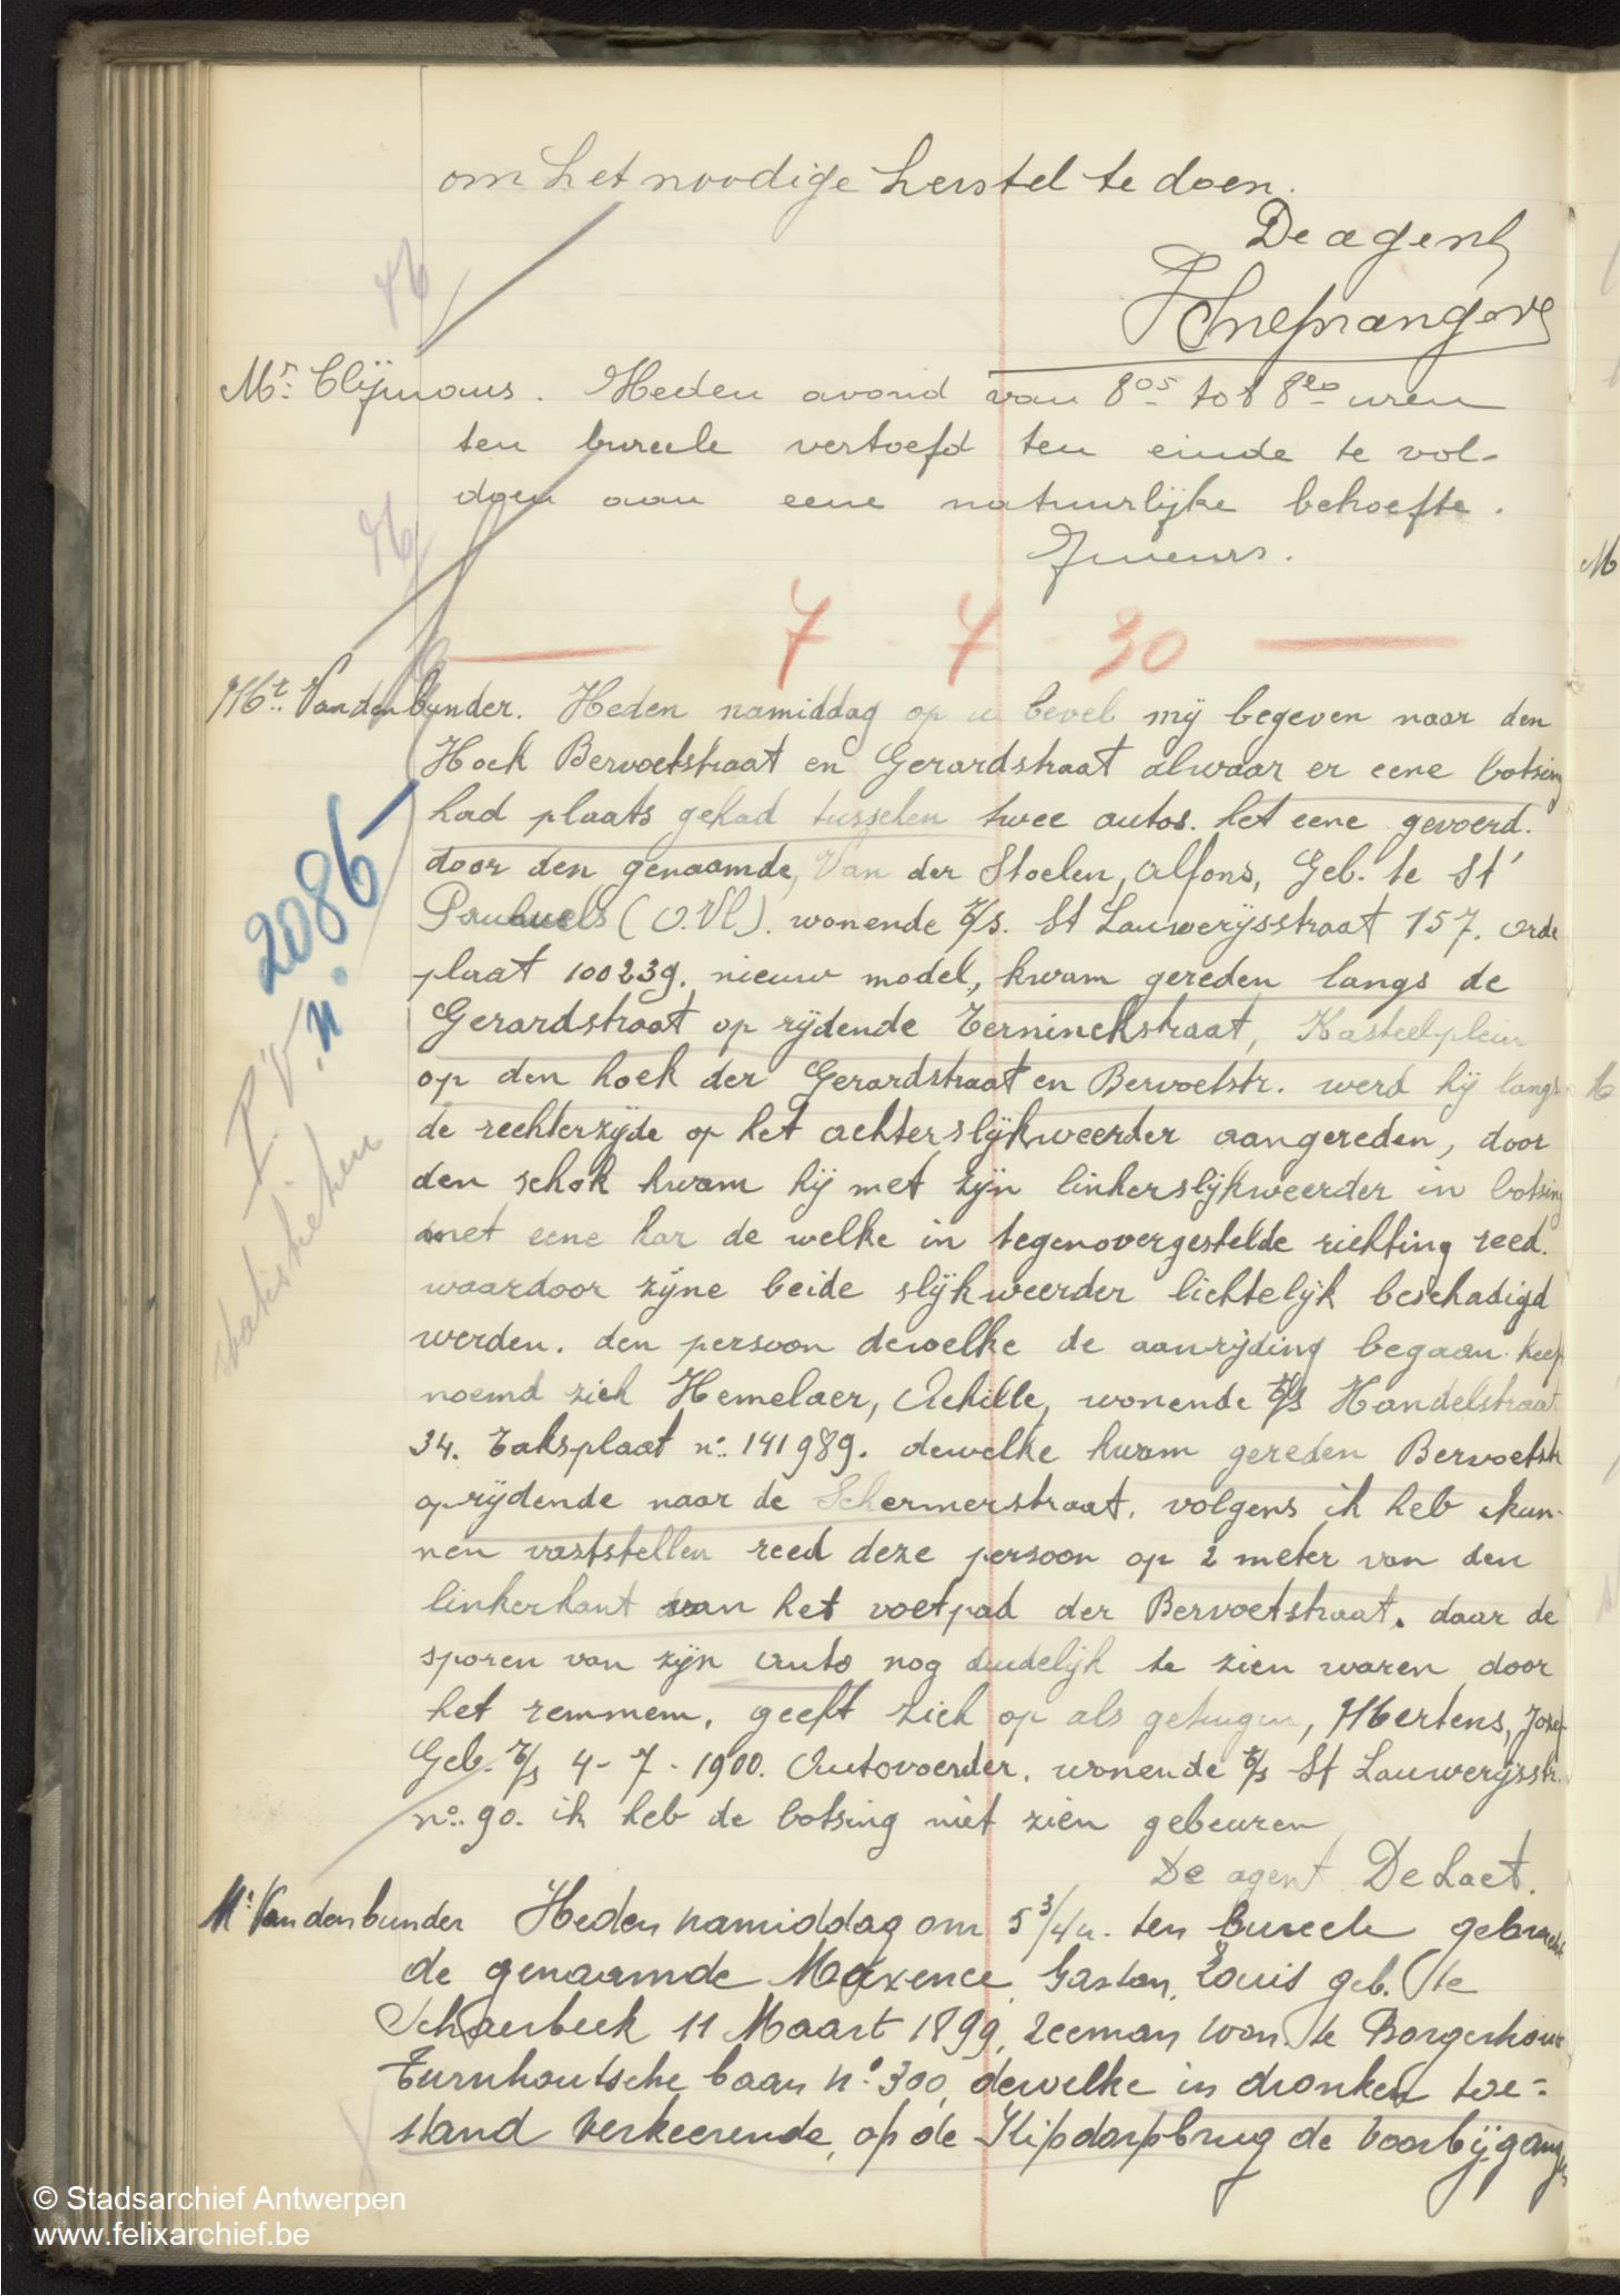 om het noodige herstel te doen.
De agent
Mr. Clijmans. Heden avond van 8 05 tot 8 20 uren
ten bureele vertoefd ten einde te vol-
doen aan eene natuurlijke behoefte.
7 - 7 - 30
Mr. Vandenbunder. Heden namiddag op u bevel mij begeven naar den
Hoek Bervoetstraat en Gerardstraat alwaar er eene botsing
had plaats gehad tusschen twee autos. het eene gevoerd.
door den genaamde, Van der Stoelen, Alfons, Geb. te St
Pauwels (O.Vl). wonende t/s. St Lauwerijsstraat 157. orde
plaat 100239. nieuw model, kwam gereden langs de
Gerardstraat op rijdende Terninckstraat, Kasteelplein
op den hoek der Gerardstraat en Bervoetstr. werd hij langs
de rechterzijde op het achterslijkweerder aangereden, door
den schok kwam hij met zijn linkerslijkweerder in botsing
met eene kar de welke in tegenovergestelde richting reed.
waardoor zijne beide slijkweerder lichtelijk beschadigd
werden. den persoon dewelke de aanrijding begaan heeft
noemd zich Hemelaer, Achille, wonende t/s Handelstraat
34. Taksplaat n: 141989. dewelke kwam gereden Bervoetstr
oprijdende naar de Schermerstraat. volgens ik heb kun-
nen vaststellen reed deze persoon op 2 meter van den
linkerkant van het voetpad der Bervoetstraat. daar de
sporen van zijn auto nog duidelijk te zien waren door
het remmem. geeft zich op als getuigen, Mertens, Jozef
Geb. t/s 4-7-1900. Autovoerder. wonende t/s St Lauwerijsstr.
no: 90. ik heb de botsing niet zien gebeuren
De agent De Laet.
2086
P.V. n.
statistieken
Mr Vandenbunder Heden namiddag om 5 3/4 u. ten bureele gebracht
de genaamde Maxence, Gaston, Louis geb. te
Schaerbeek 11 Maart 1899, zeeman won. te Borgerhout
Turnhoutsche baan n° 300, dewelke in dronken toe=
stand verkeerende, op de Kipdorpbrug de voorbijgangers
© Stadsarchief Antwerpen
www.felixarchief.be